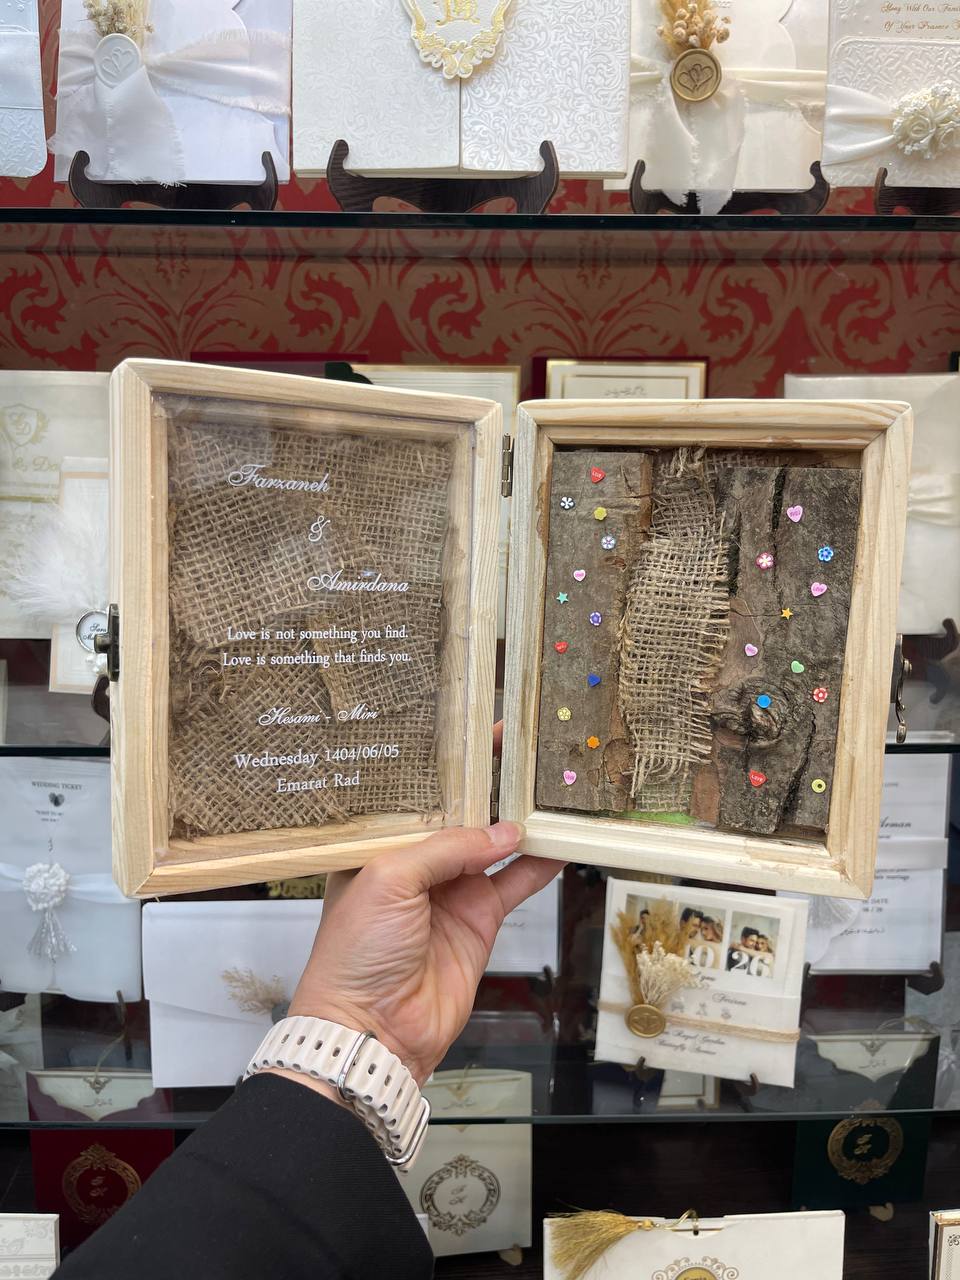 Along With Our Fami
Of Your Presence
Farzaneh
&
Amirdana
Love is not something you find.
Love is something that finds you.
Hesami - Miri
Wednesday 1404/06/05
Emarat Rad
LOVE
LOVE
WEDDING TICKET
Arman
DATE
26
Royal Garden